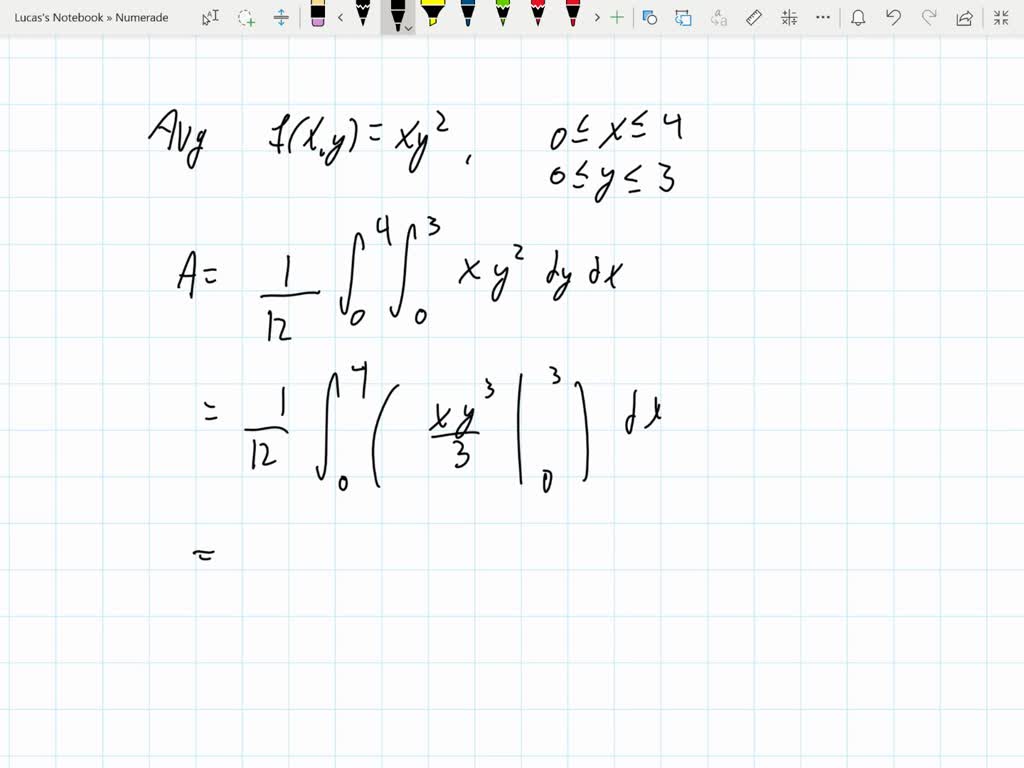 Lucas's Notebook » Numerade
Avg f(x,y) = xy², 0 ≤ x ≤ 4
0 ≤ y ≤ 3
A = 1/12 ∫₀⁴ ∫₀³ x y² dy dx
= 1/12 ∫₀⁴ ( xy³/3 |₀³ ) dx
=